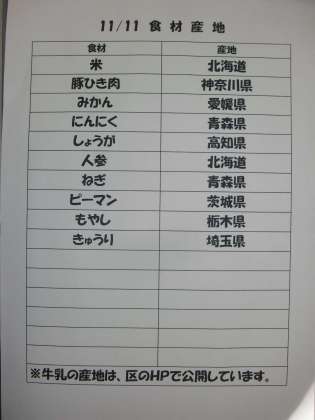 11/11 食材産地
食材 産地
米 北海道
豚ひき肉 神奈川県
みかん 愛媛県
にんにく 青森県
しょうが 高知県
人参 北海道
ねぎ 青森県
ピーマン 茨城県
もやし 栃木県
きゅうり 埼玉県
※牛乳の産地は、区のHPで公開しています。